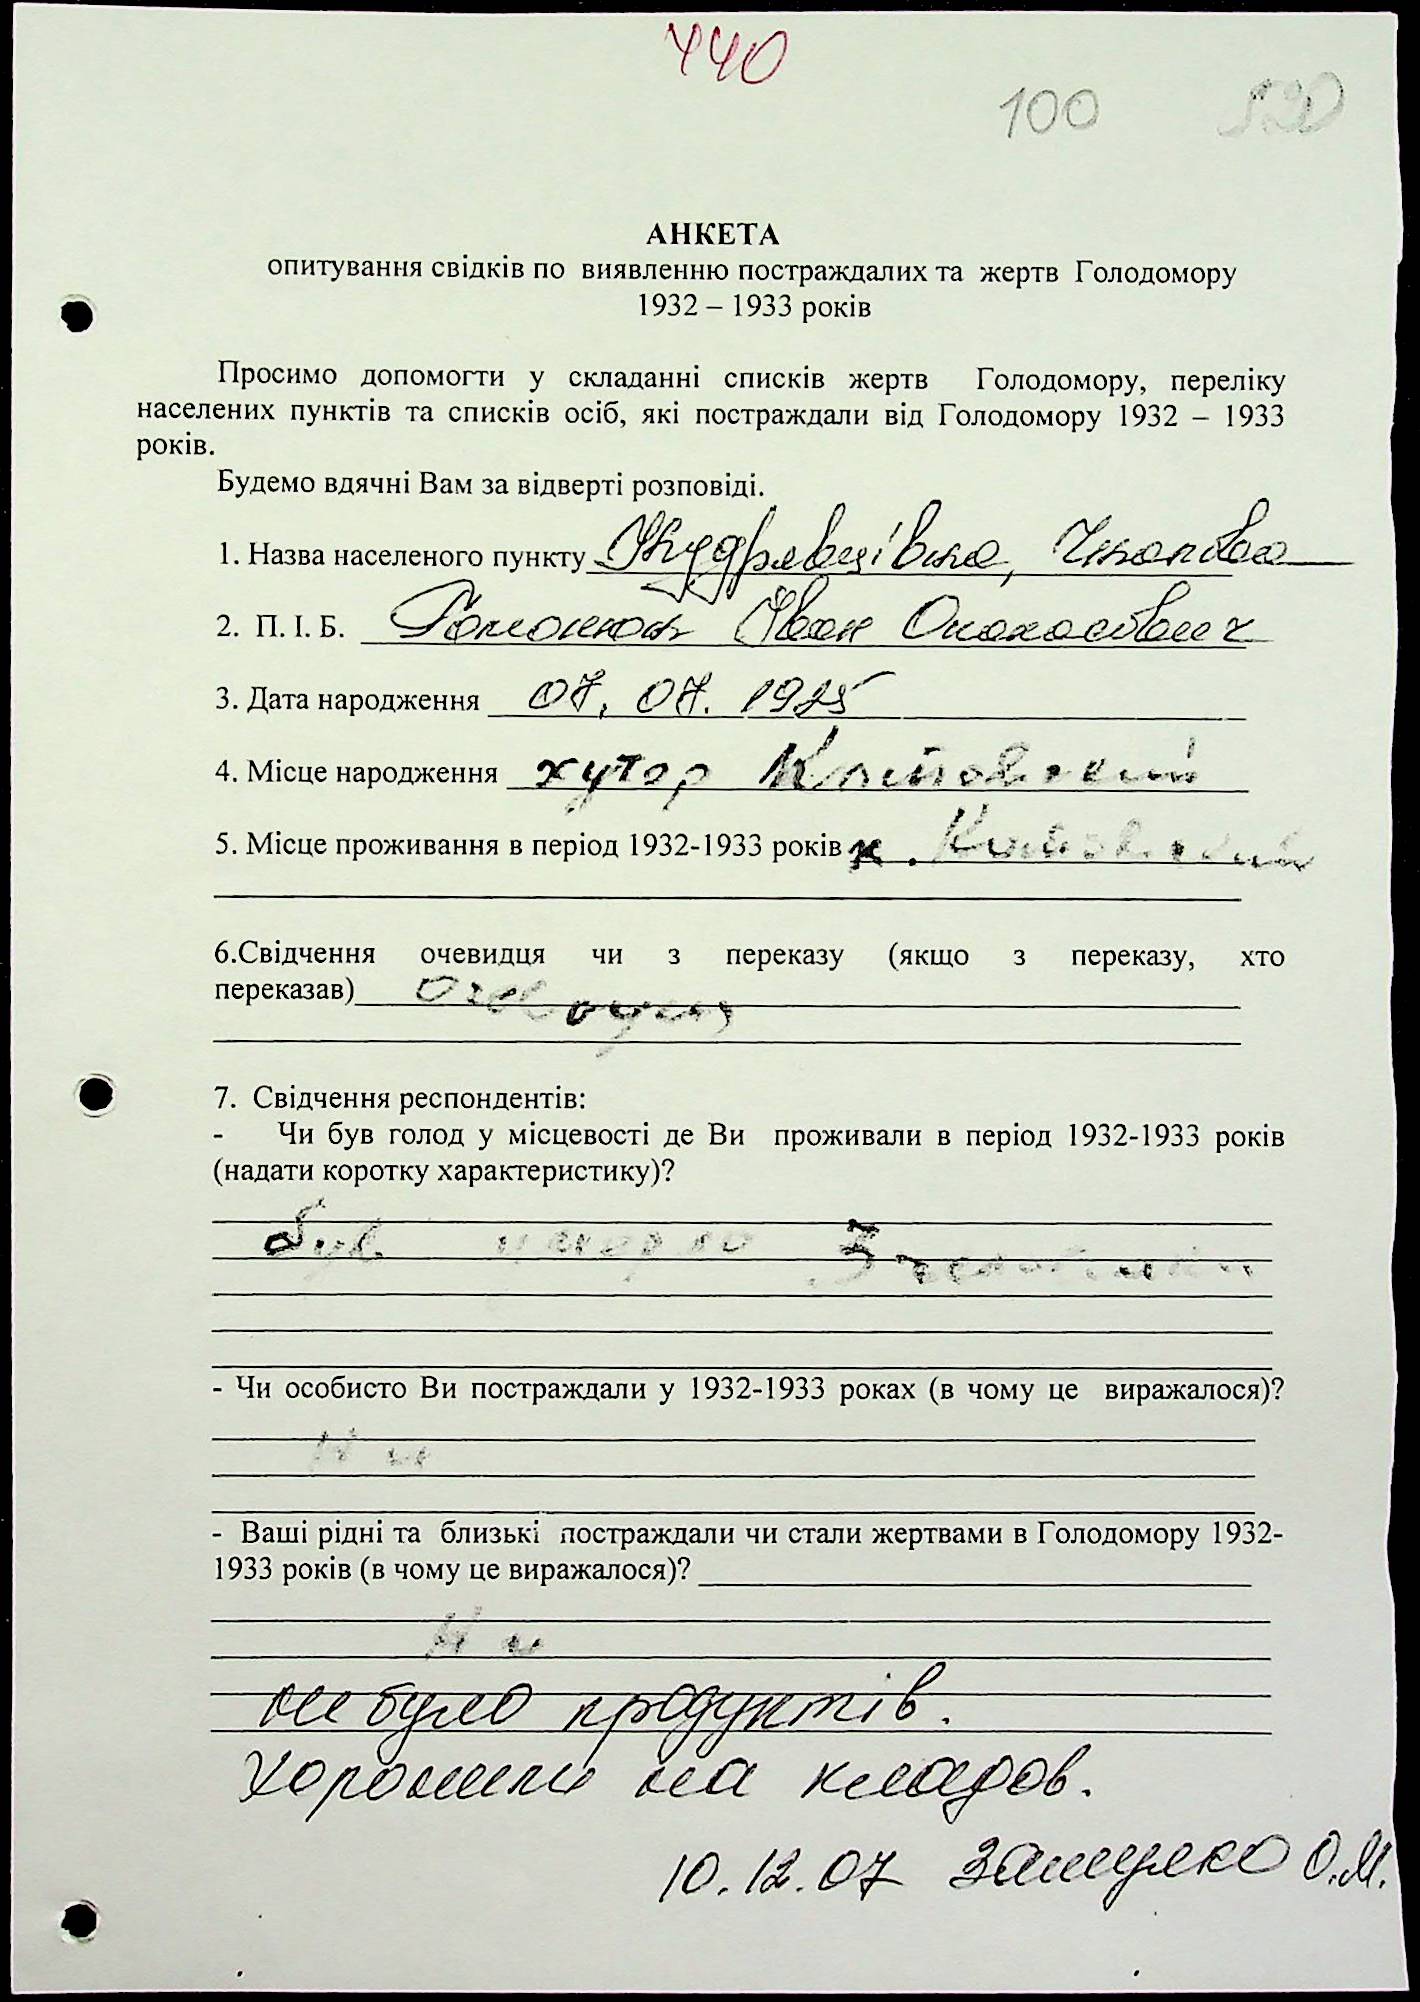 440
100
АНКЕТА
опитування свідків по виявленню постраждалих та жертв Голодомору
1932 – 1933 років
Просимо допомогти у складанні списків жертв Голодомору, переліку
населених пунктів та списків осіб, які постраждали від Голодомору 1932 – 1933
років.
Будемо вдячні Вам за відверті розповіді.
1. Назва населеного пункту Кудрявцівка,
2. П. І. Б. Романюк Іван
3. Дата народження 07. 07. 1925
4. Місце народження хутор Котовский
5. Місце проживання в період 1932-1933 років х. Котовский
6.Свідчення очевидця чи з переказу (якщо з переказу, хто
переказав) Очевидец
7. Свідчення респондентів:
- Чи був голод у місцевості де Ви проживали в період 1932-1933 років
(надати коротку характеристику)?
був
- Чи особисто Ви постраждали у 1932-1933 роках (в чому це виражалося)?
Ни
- Ваші рідні та близькі постраждали чи стали жертвами в Голодомору 1932-
1933 років (в чому це виражалося)?
Ни
не було продуктів.
Хоронили на кладов.
10.12.07 О.М.